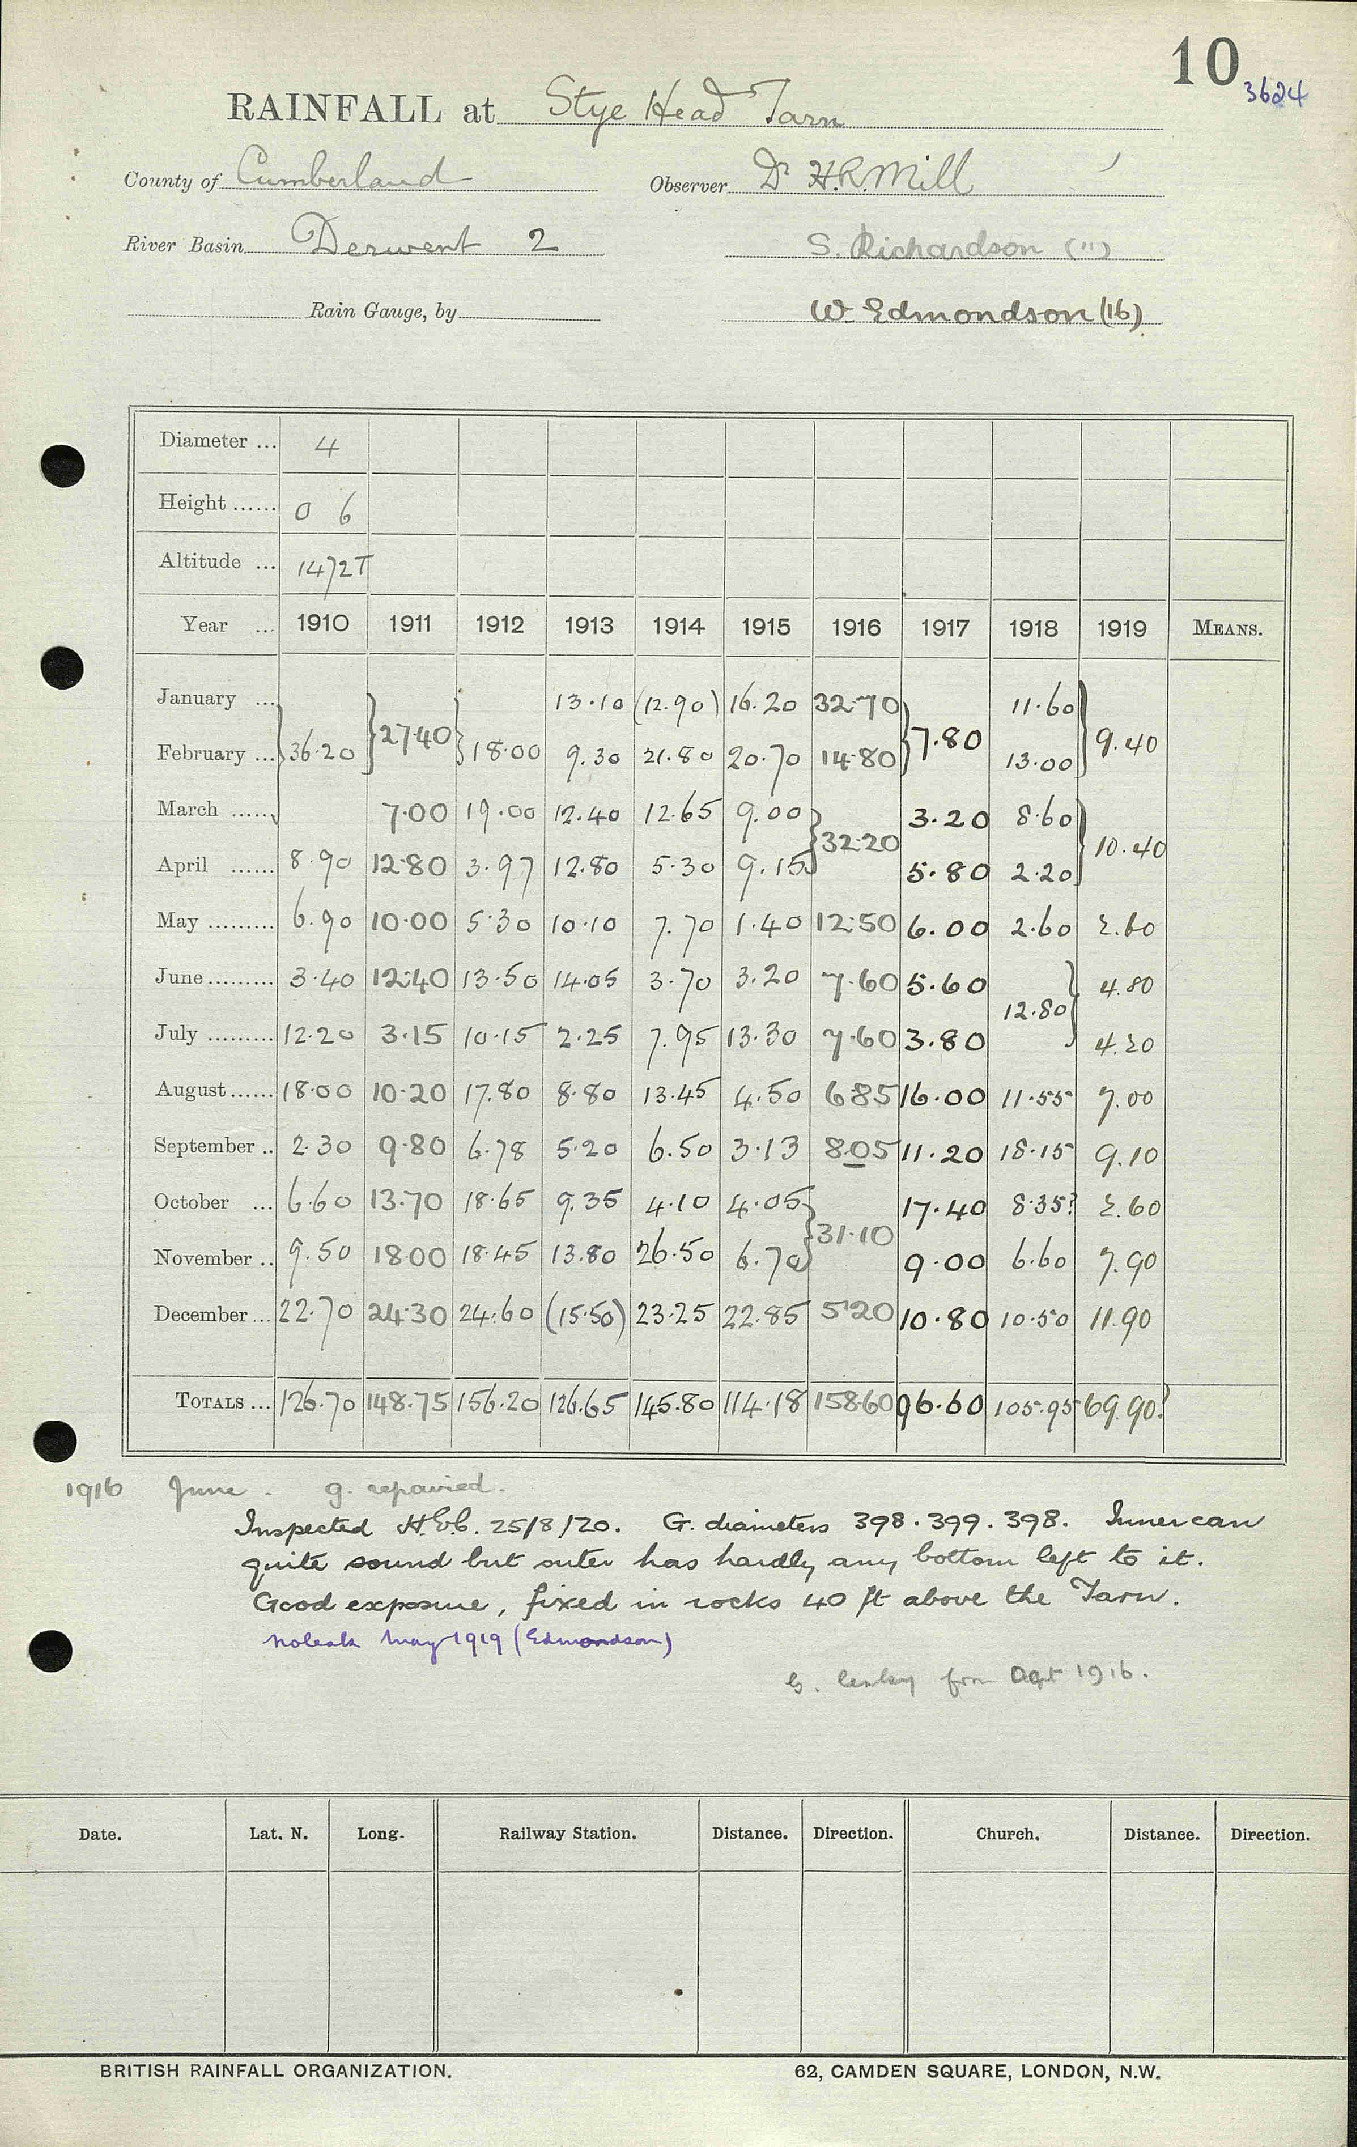 10
3624
RAINFALL at Stye Head Tarn
County of Cumberland Observer Dr H.R. Mill
River Basin Derwent 2 S. Richardson (")
Rain Gauge, by W. Edmondson (16)
Diameter ... 4
Height ...... 0 6
Altitude ... 1472T
Year ... 1910 1911 1912 1913 1914 1915 1916 1917 1918 1919 MEANS.
January ... 13.10 (12.90) 16.20 32.70 11.60
February ... 36.20 27.40 18.00 9.30 21.80 20.70 14.80 7.80 13.00 9.40
March ...... 7.00 19.00 12.40 12.65 9.00 3.20 8.60
April ...... 8.90 12.80 3.97 12.80 5.30 9.15 32.20 5.80 2.20 10.40
May ......... 6.90 10.00 5.30 10.10 7.70 1.40 12.50 6.00 2.60 2.60
June ......... 3.40 12.40 13.50 14.05 3.70 3.20 7.60 5.60 4.80
July ......... 12.20 3.15 10.15 2.25 7.95 13.30 7.60 3.80 12.80 4.20
August ...... 18.00 10.20 17.80 8.80 13.45 4.50 6.85 16.00 11.55 7.00
September .. 2.30 9.80 6.78 5.20 6.50 3.13 8.05 11.20 18.15 9.10
October ... 6.60 13.70 18.65 9.35 4.10 4.05 17.40 8.35? 2.60
November .. 9.50 18.00 18.45 13.80 26.50 6.70 31.10 9.00 6.60 7.90
December ... 22.70 24.30 24.60 (15.50) 23.25 22.85 5.20 10.80 10.50 11.90
TOTALS ... 126.70 148.75 156.20 126.65 145.80 114.18 158.60 96.60 105.95 69.90?
1916 June. g. repaired.
Inspected 25/8/20. G. diameters 398.399.398. Inner can
quite sound but outer has hardly any bottom left to it.
Good exposure, fixed in rocks 40 ft above the Tarn.
No leak May 1919 (Edmondson)
G. leaky from 1916.
Date. Lat. N. Long. Railway Station. Distance. Direction. Church. Distance. Direction.
BRITISH RAINFALL ORGANIZATION. 62, CAMDEN SQUARE, LONDON, N.W.